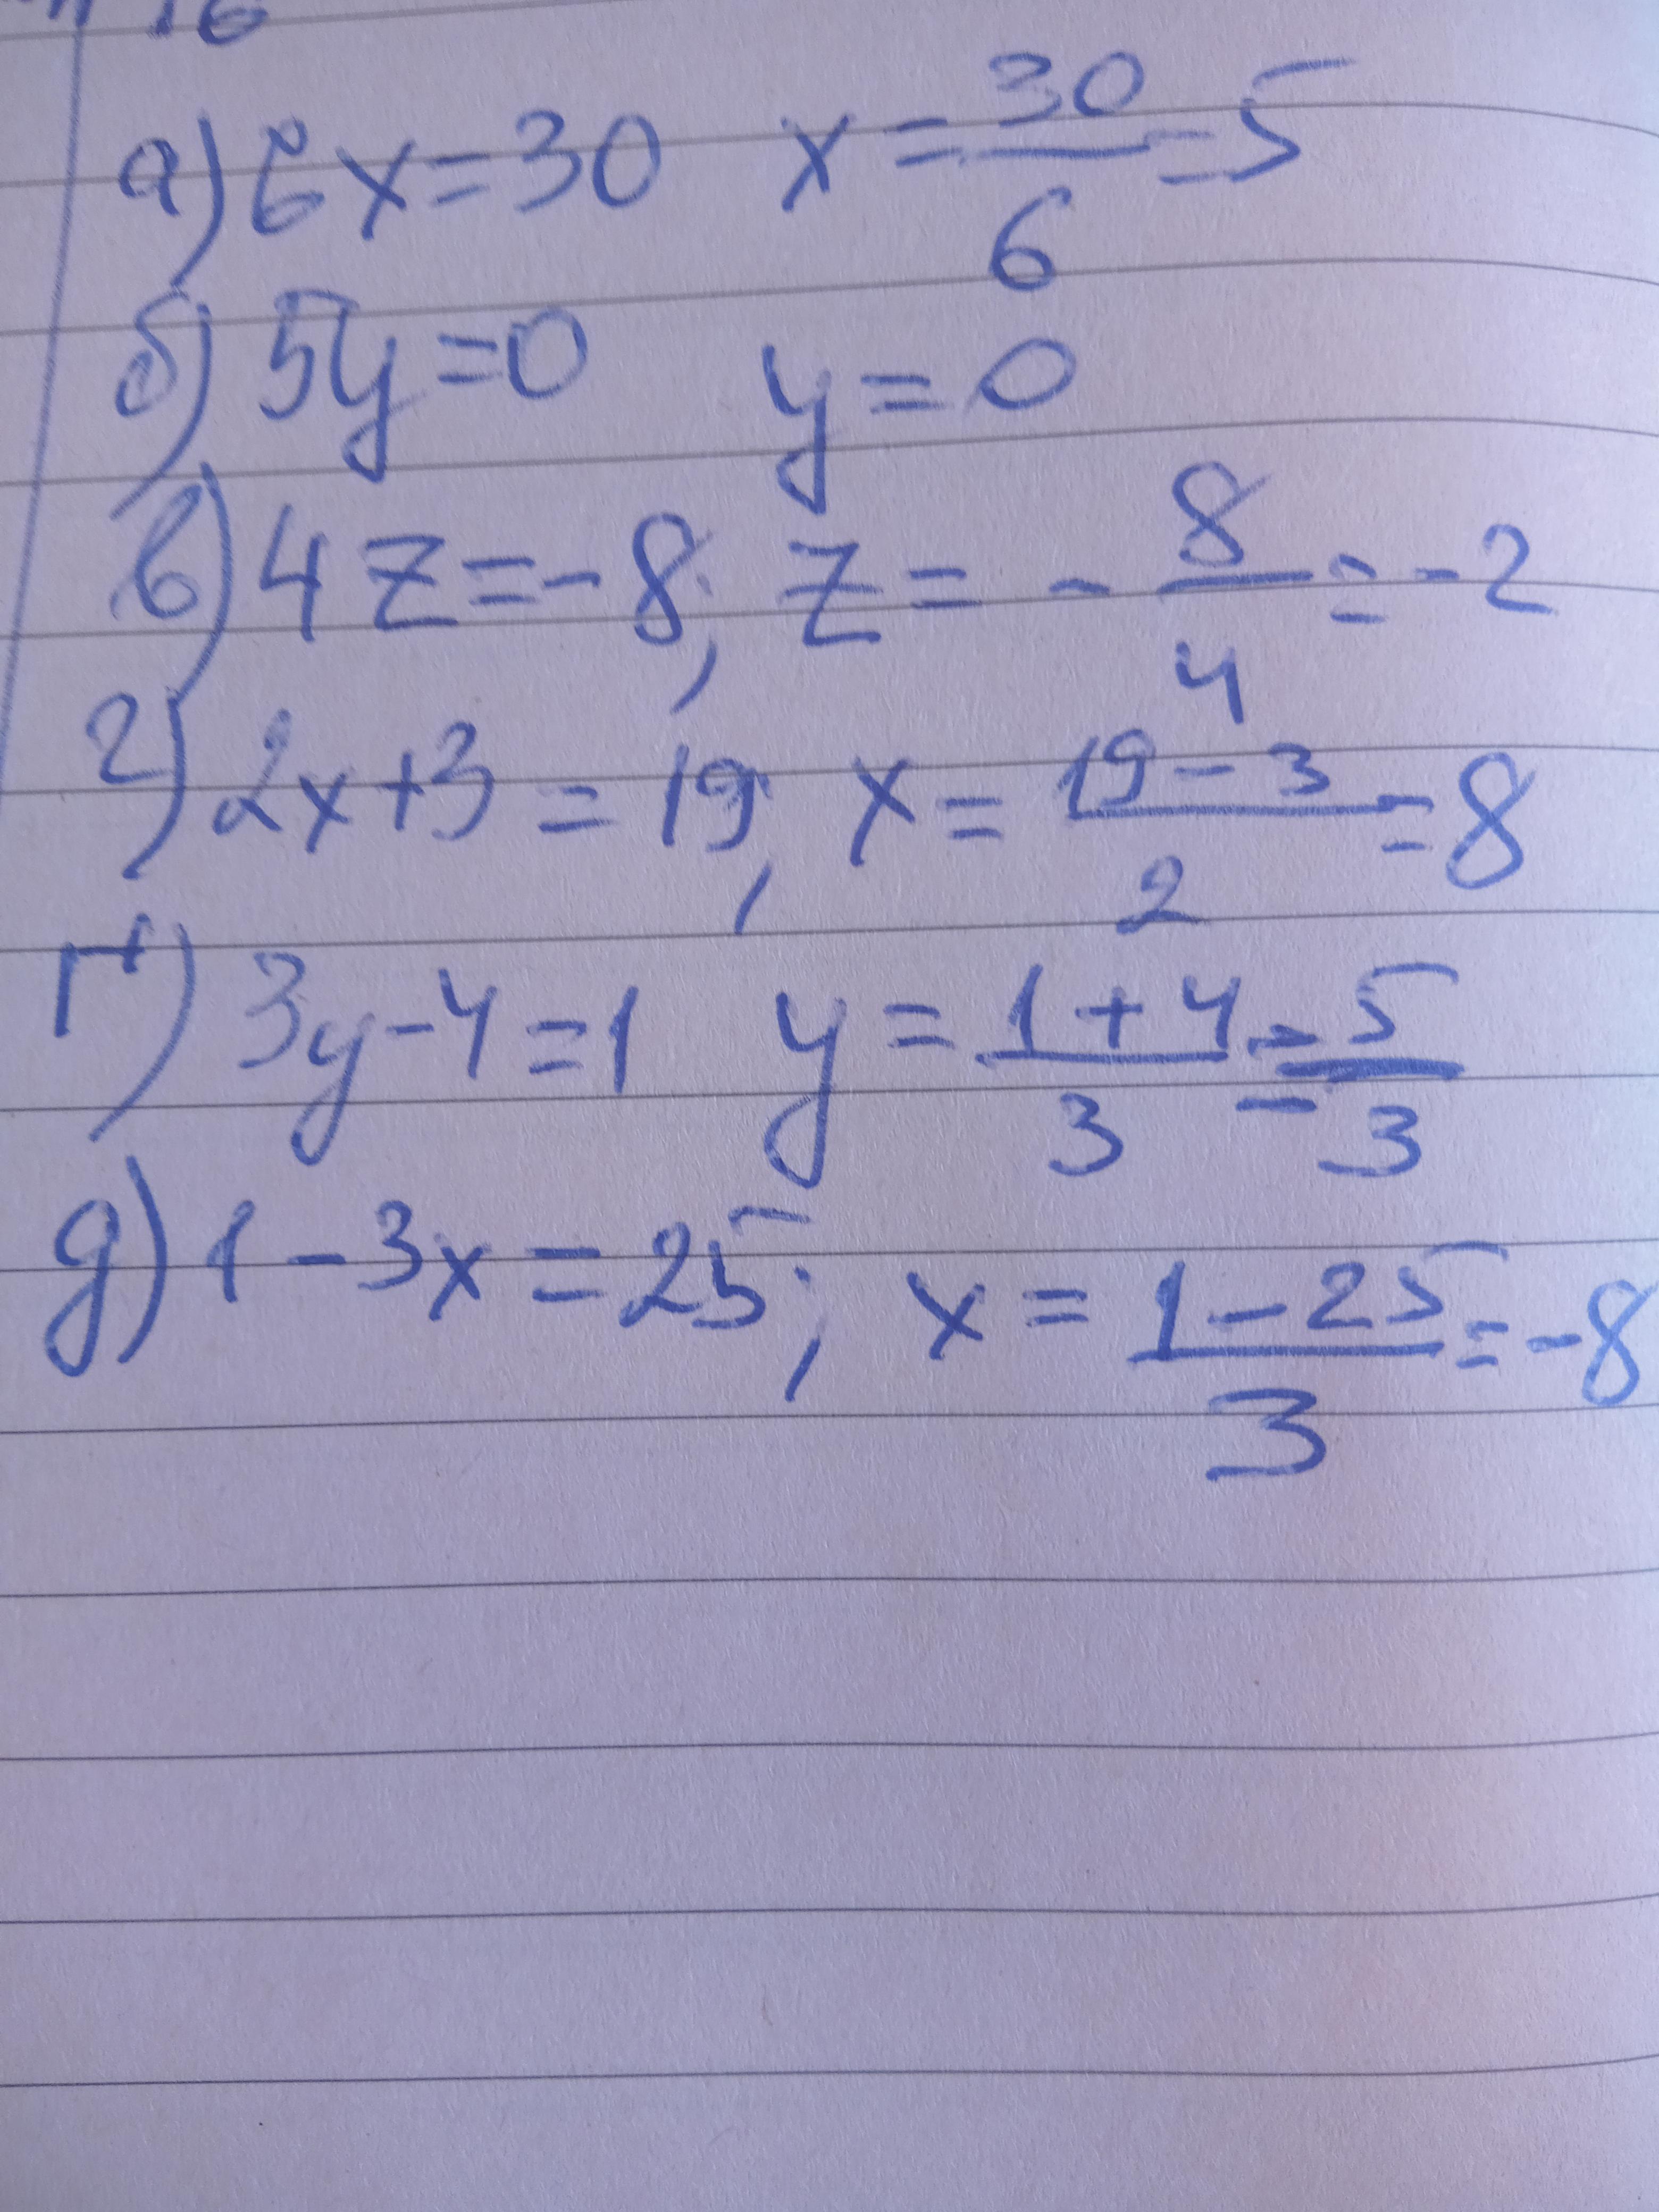 16
а) 6x=30 x = 30/6 = 5
б) 5y=0 y = 0
в) 4z=-8; z = - 8/4 = -2
г) 2x+3 = 19; x = 19-3/2 = 8
ґ) 3y-4=1 y = 1+4/3 = 5/3
д) 1-3x=25; x = 1-25/3 = -8